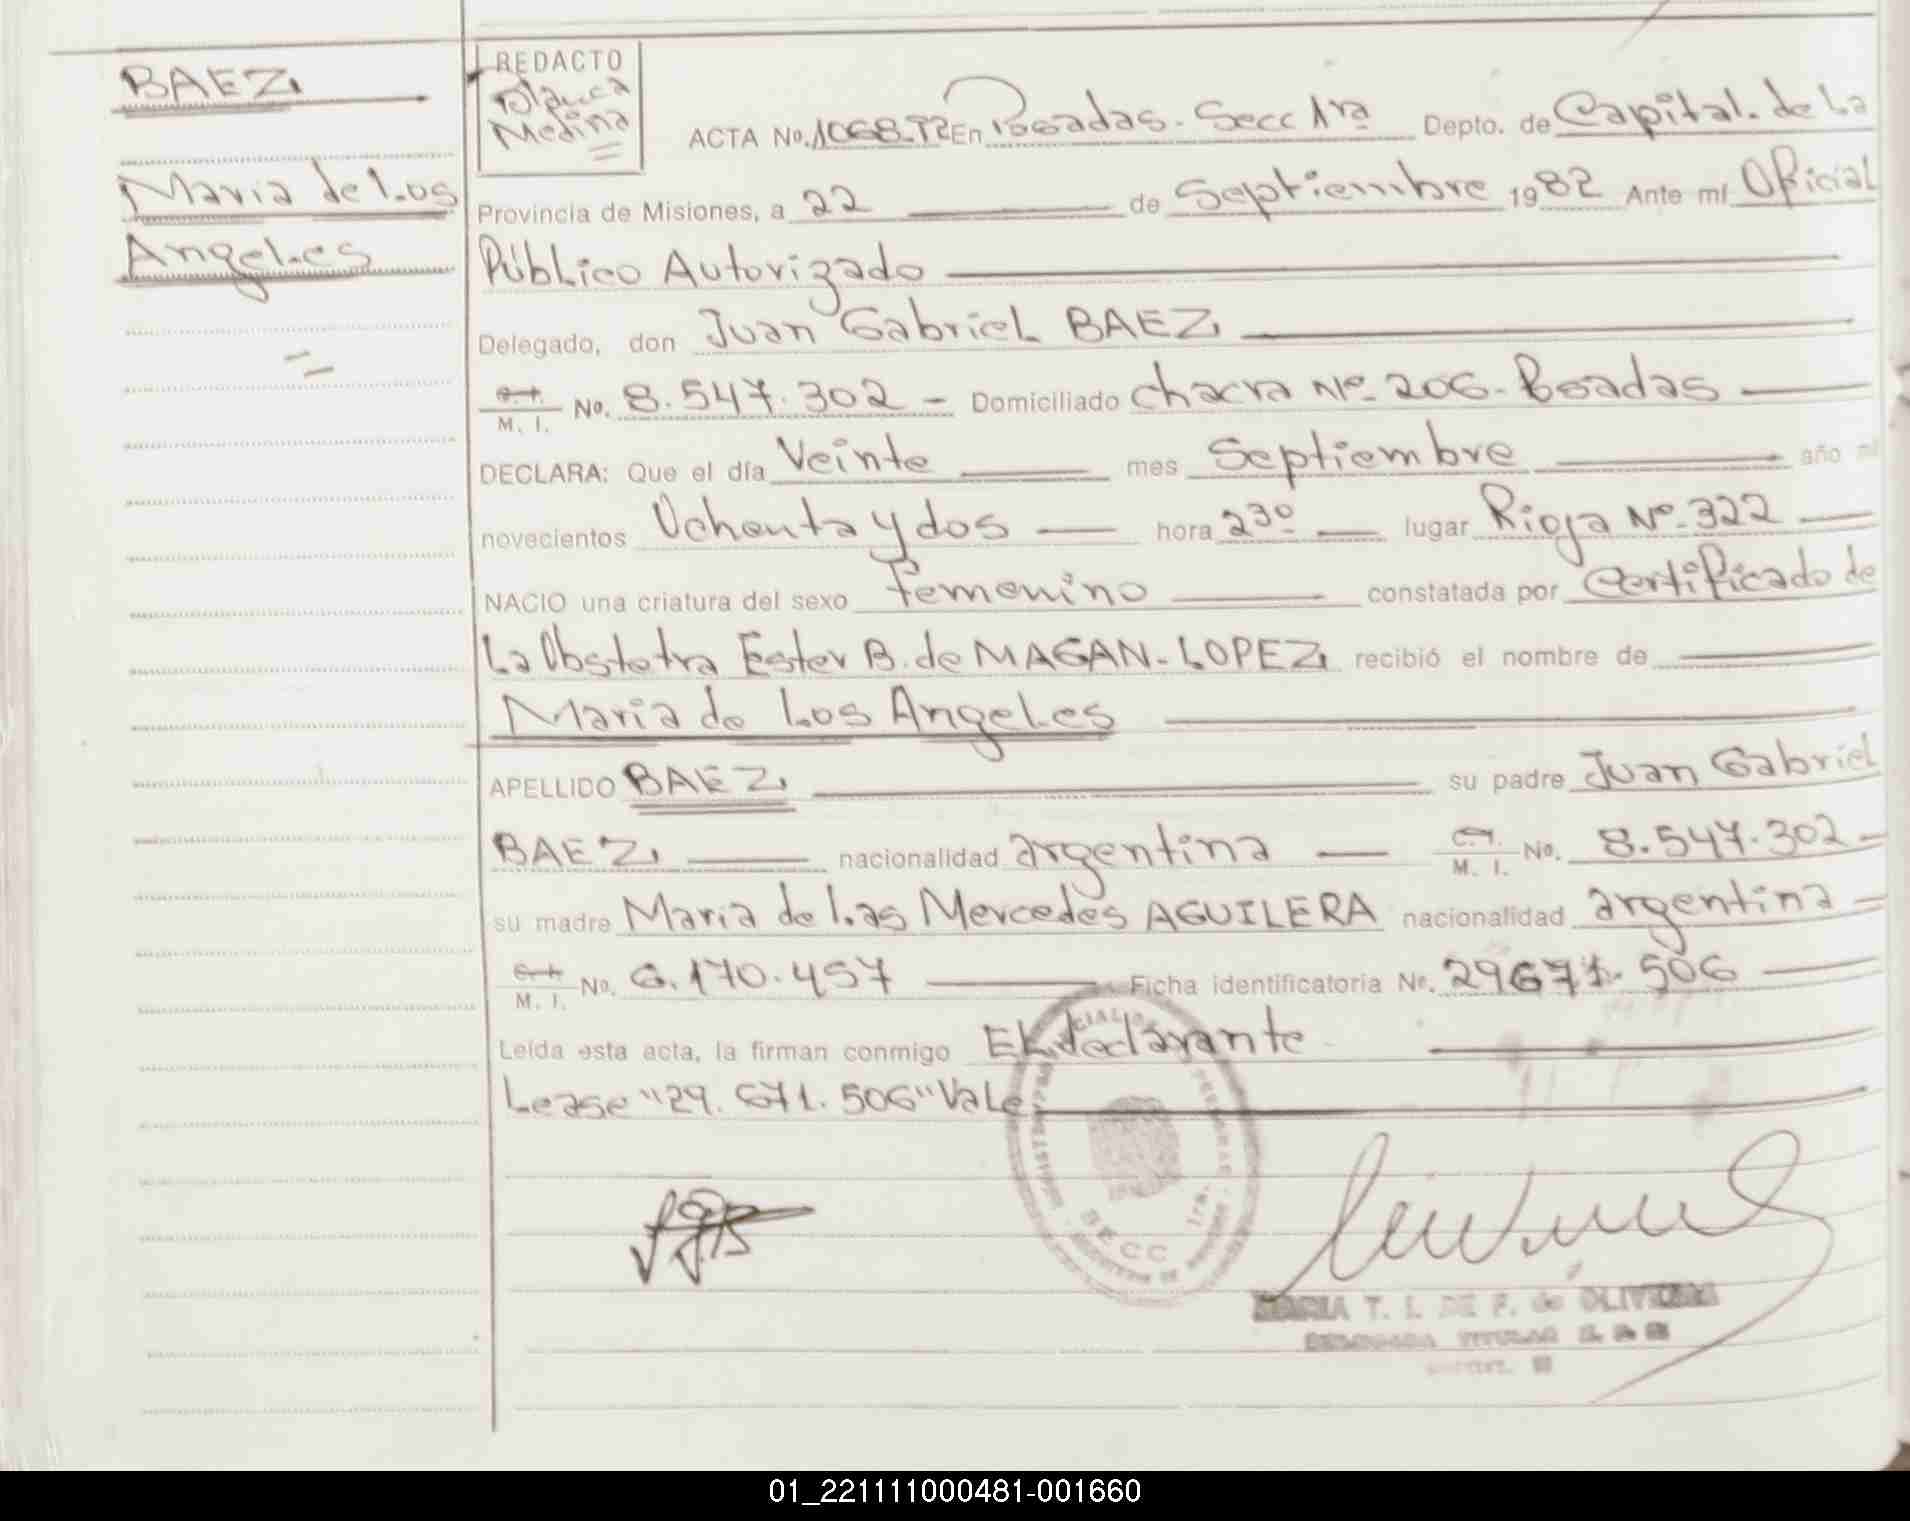 BAEZ
Maria de Los
Angeles
REDACTO
Blanca
Medina
ACTA No. 1068. En Posadas. Secc 1ra Depto. de Capital. de La
Provincia de Misiones, a 22 de Septiembre 1982 Ante mí Oficial
Público Autorizado
Delegado, don Juan Gabriel BAEZ
M. I. No. 8.547.302 - Domiciliado Chacra Nº 206. Posadas
DECLARA: Que el día Veinte mes Septiembre año mi
novecientos Ochenta y dos hora 23º lugar Rioja Nº. 322
NACIO una criatura del sexo femenino constatada por Certificado de
La Obstetra Ester B. de MAGAN-LOPEZ recibió el nombre de
Maria de Los Angeles
APELLIDO BAEZ su padre Juan Gabriel
BAEZ nacionalidad argentina C.I. M. I. No. 8.547.302 -
su madre Maria de Las Mercedes AGUILERA nacionalidad argentina -
M. I. No. 6.170.457 Ficha identificatoria No. 29671.506
Leída esta acta, la firman conmigo El declarante
Lease "29.671.506" Vale
SECC 1ra.
MARIA T. L. DE F. de OLIVEIRA
DELEGADA TITULAR
01_221111000481-001660